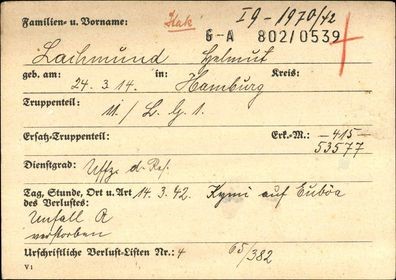 Familien- u. Vorname: Hak I 9 - 1970/42
G-A 802/0539
Lachmund Helmut
geb. am: 24. 3. 14. in: Hamburg Kreis:
Truppenteil: 11./ L. G. 1.
Ersatz-Truppenteil: Erk.-M.: -415-
53577
Dienstgrad: Uffz. d. Res.
Tag, Stunde, Ort u. Art 14. 3. 42. Kymi auf Euböa
des Verlustes:
Unfall R
verstorben
Urschriftliche Verlust-Listen Nr.: 4 65/382
V 1